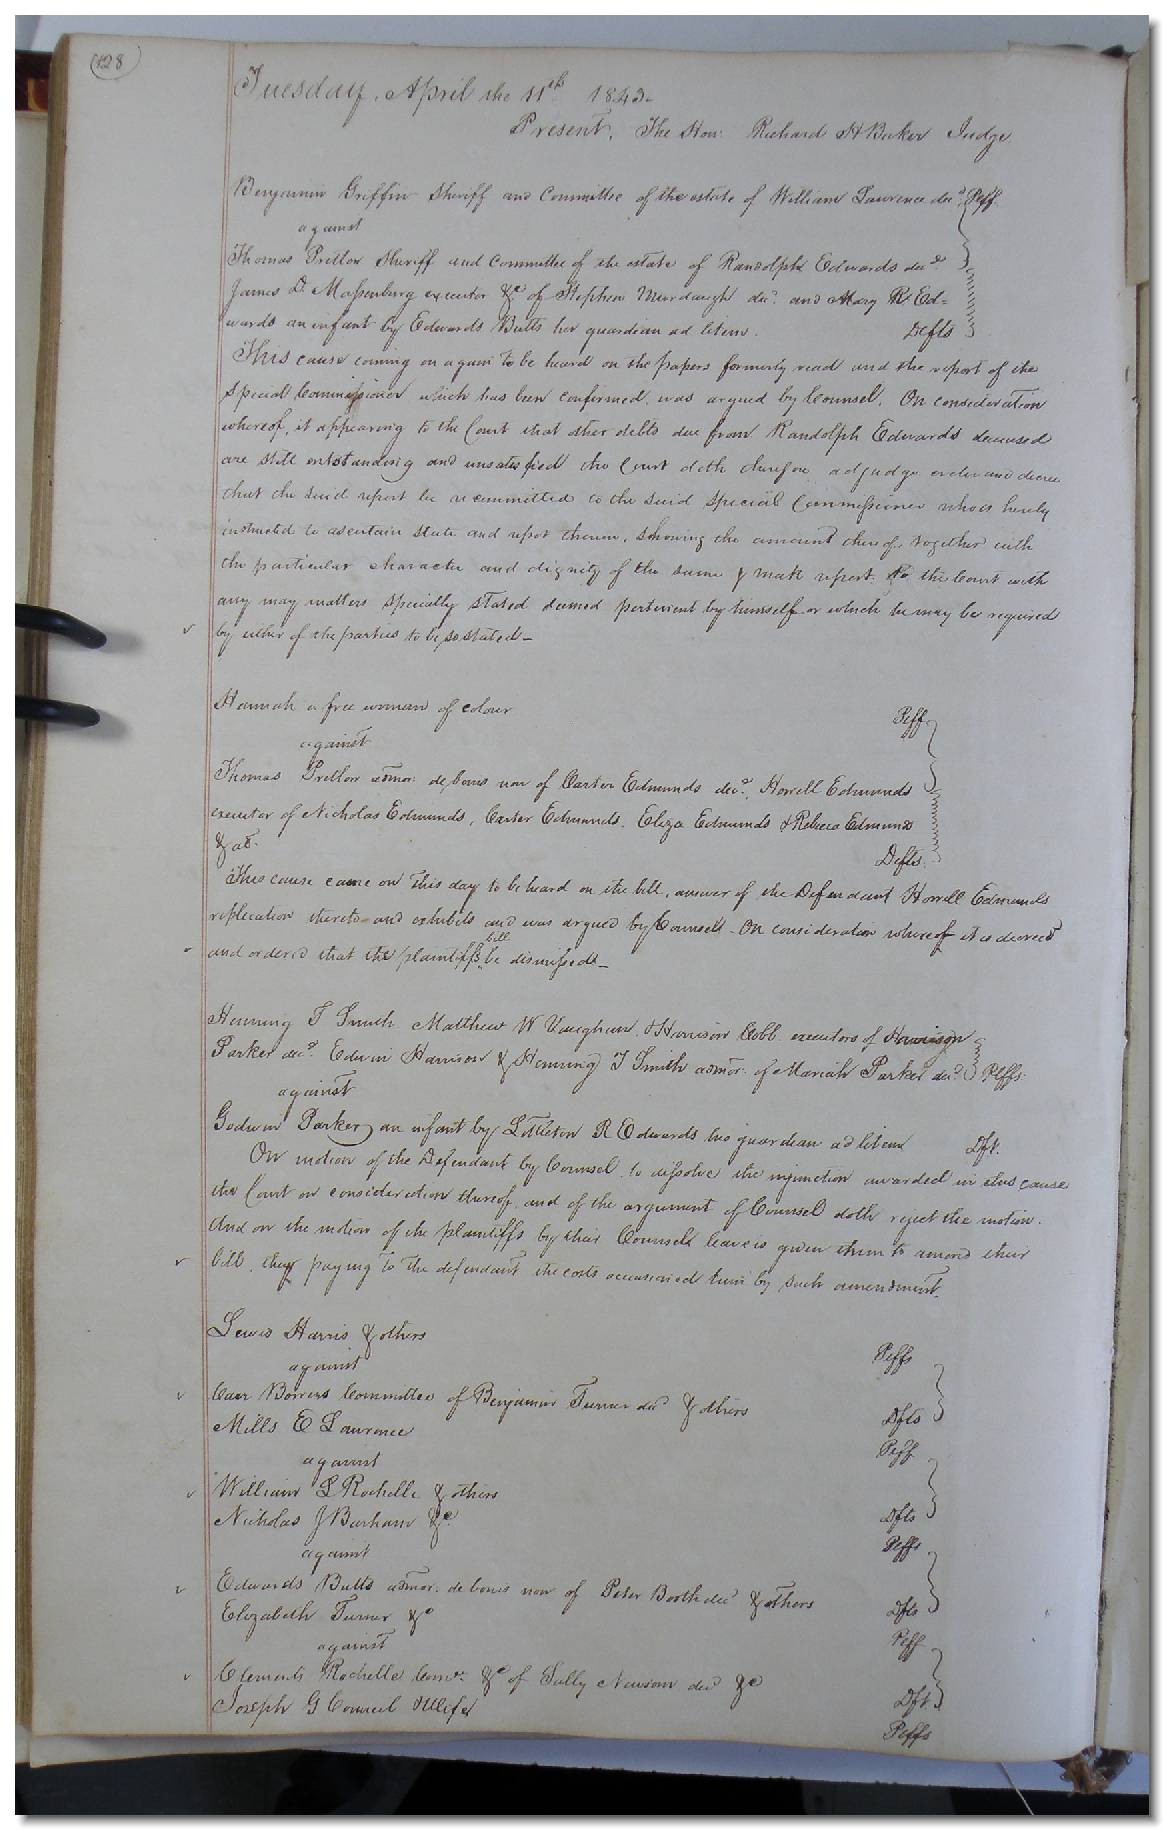 128
Tuesday, April the 11th 1843.
Present, The Hon: Richard H Baker Judge.
Benjamin Griffin Sheriff and Committee of the estate of William Lawrence decd. Plff
against
Thomas Pretlow Sheriff and Committee of the estate of Randolph Edwards decd.
James D. Massenburg executor &c of Stephen Murdaugh decd. and Mary R. Ed=
wards an infant by Edwards Butts her guardian ad litem. Defts
This cause coming on again to be heard on the papers formerly read and the report of the
special Commissioner which has been confirmed, was argued by Counsel, On consideration
whereof, it appearing to the Court that other debts due from Randolph Edwards deceased
are still outstanding and unsatisfied the Court doth therefore adjudge order and decree
that the said report be recommitted to the said special Commissioner who is hereby
instructed to ascertain state and report thereon, showing the amount thereof, together with
the particular character and dignity of the same & make report to the Court with
any may matters specially stated deemed pertinent by himself or which he may be required
by either of the parties to be so stated-
Hannah a free woman of colour Plff
against
Thomas Pretlow admor. de bonis non of Carter Edmunds decd. Howell Edmunds
executor of Nicholas Edmunds, Carter Edmunds, Eliza Edmunds & Rebecca Edmunds
& al. Defts
This cause came on this day to be heard on the bill, answer of the Defendant Howell Edmunds
replication thereto and exhibits and was argued by Counsel - On consideration whereof it is decreed
and ordered that the plaintiffs bill be dismissed-
Henning T Smith Matthew W Vaughan & Harrison Cobb executors of Harrison
Parker decd. Edwin Harrison & Henning T Smith admor. of Mariah Parker decd. Plffs.
against
Godwin Parker an infant by Littleton R Edwards his guardian ad litem Dft.
On motion of the Defendant by Counsel to dissolve the injunction awarded in this cause
the Court on consideration thereof and of the argument of Counsel doth reject the motion.
And on the motion of the plaintiffs by their Counsel leave is given them to amend their
bill, they paying to the defendant the costs occasioned him by such amendment.
Lewis Harris & others Plffs
against
Carr Bowers Committee of Benjamin Turner decd & others Dfts
Mills E Lawrence Plff
against
William L Rochelle & others Dfts
Nicholas J Barham &c. Plffs
against
Edwards Butts admor. de bonis non of Peter Booth decd & others Dfts
Elizabeth Turner &c Plff
against
Clements Rochelle Comr. &c of Sally Newsom decd &c Dft.
Joseph G Council & Wife Plffs